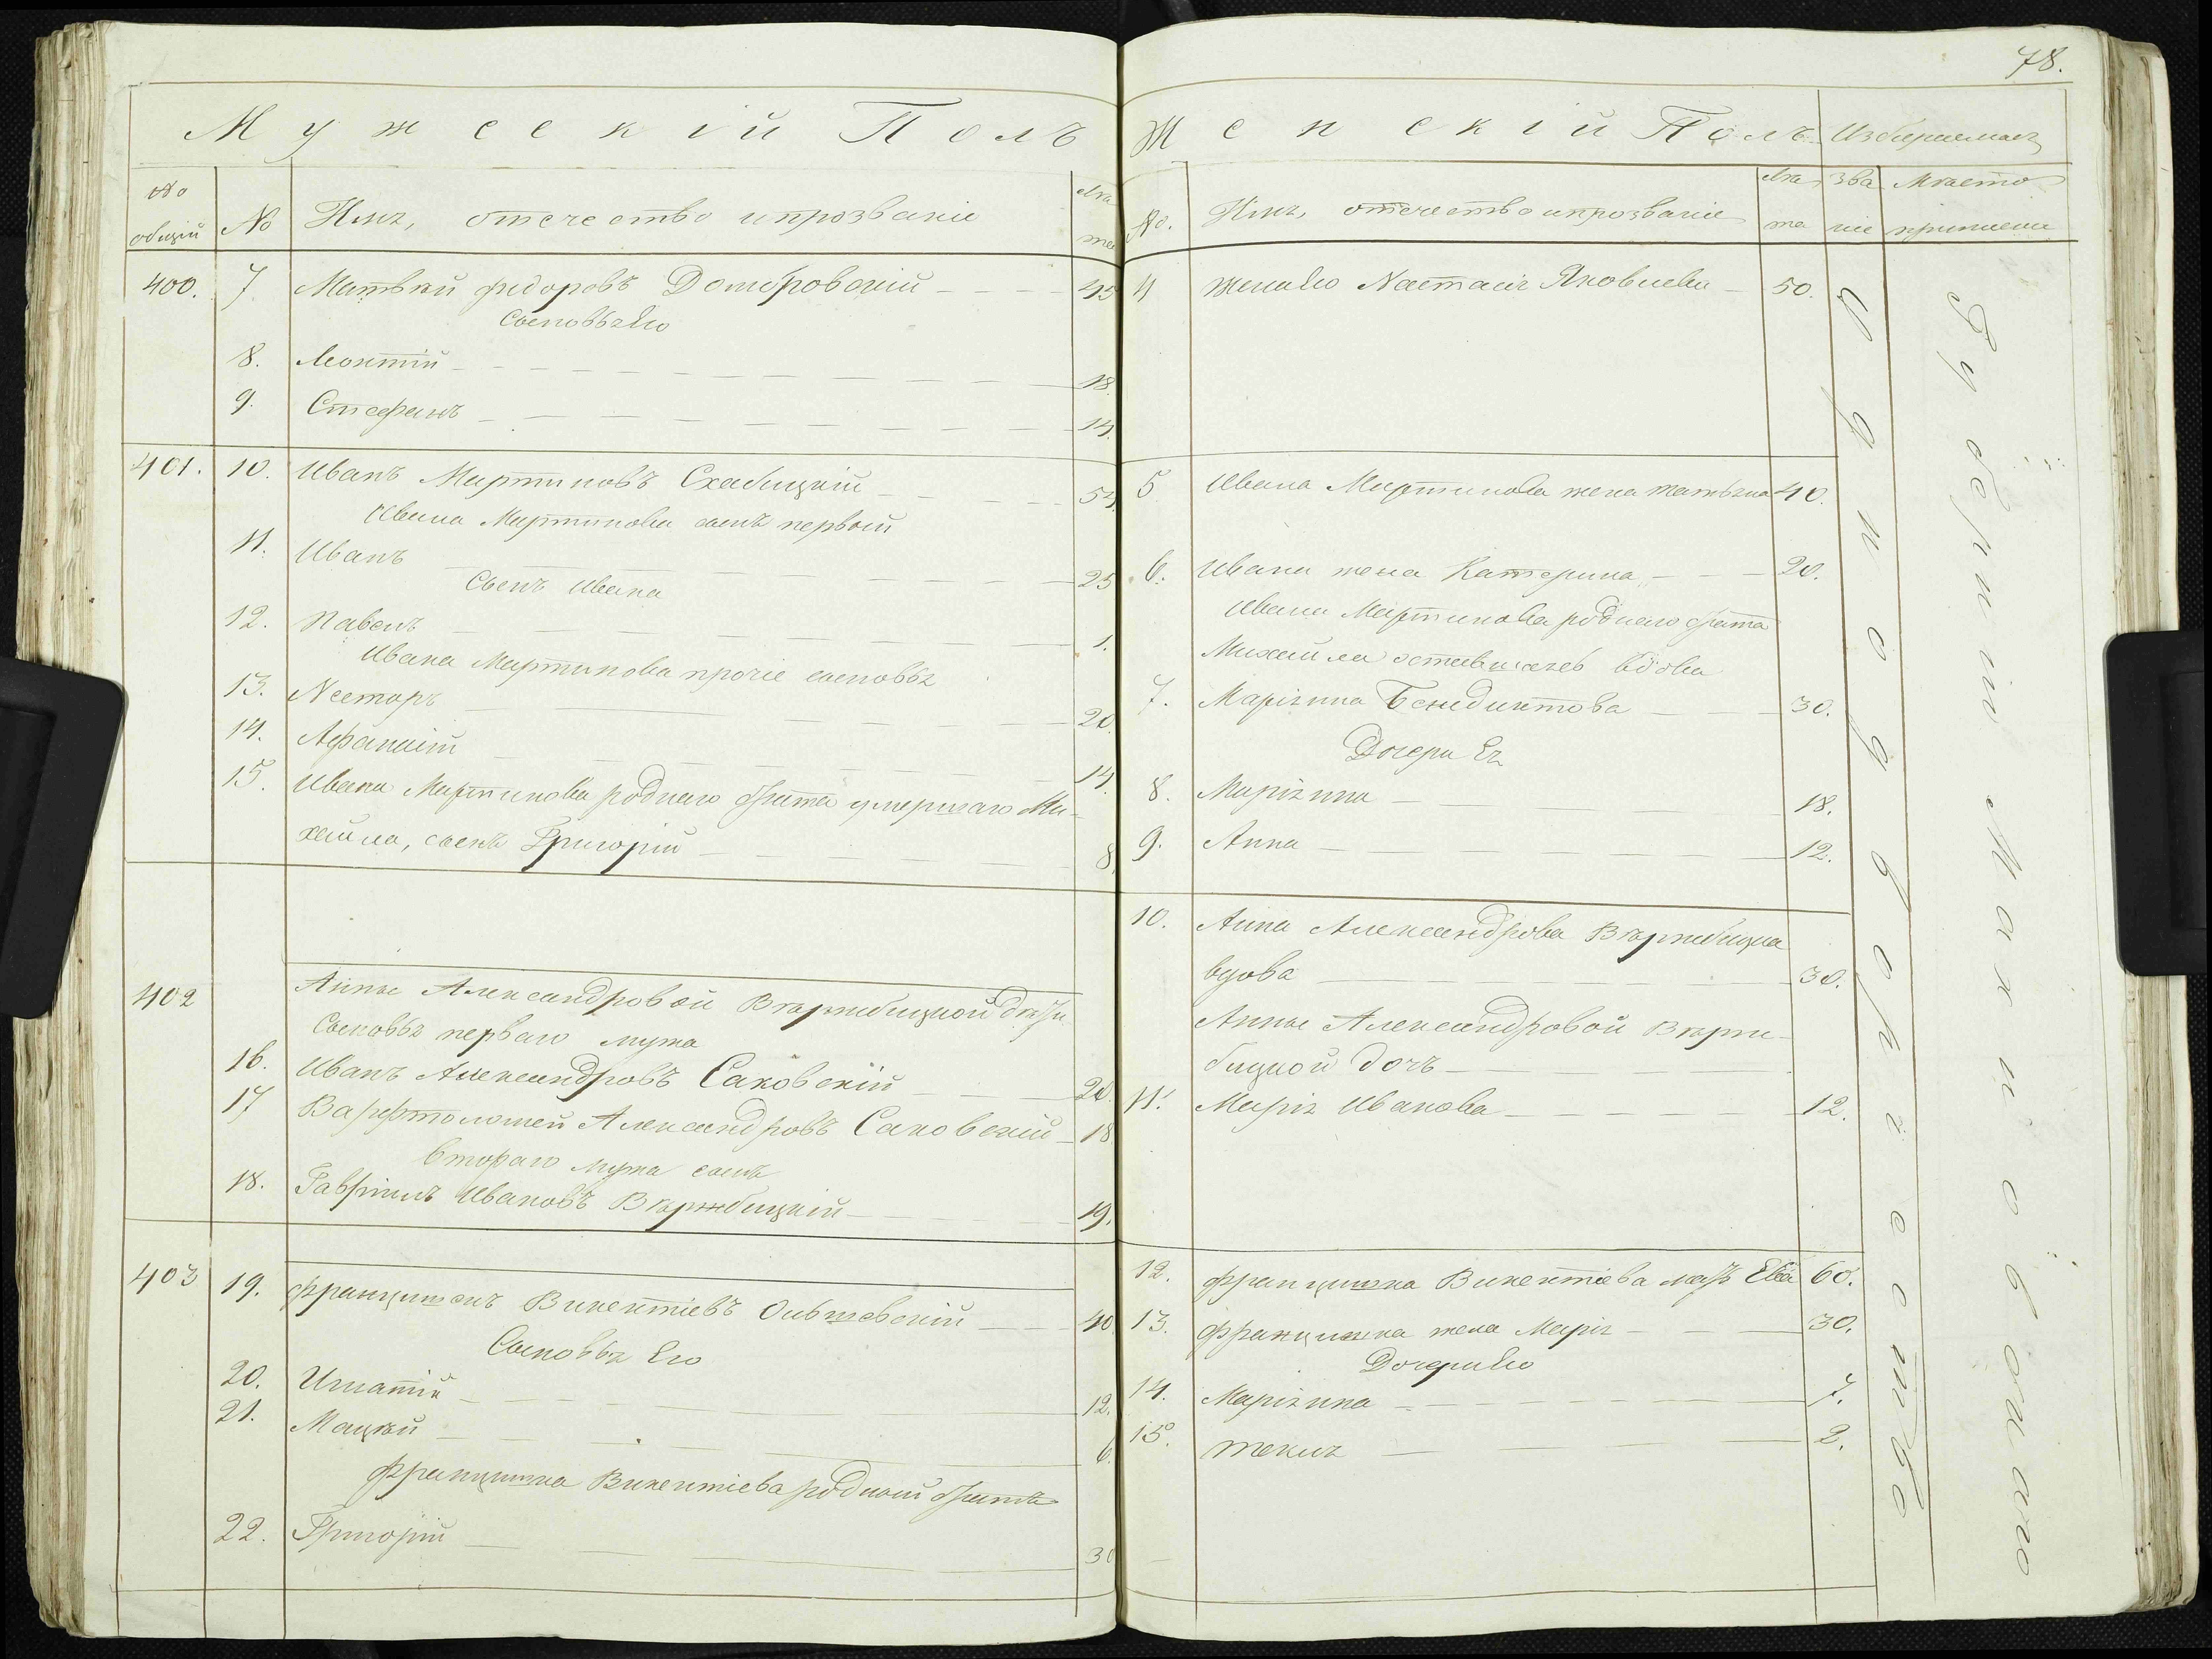 78.
Мужескій Полъ
№ общій
№
Имя, отечество и прозваніе
Лѣта
400. 7 Матвѣй Федоровъ Домбровскій 45
Сыновья Его
8. Леонтій 18.
9. Стефанъ 14.
401. 10. Иванъ Мартиновъ Схабицкій 54.
Ивана Мартинова сынъ первый
11. Иванъ 25
Сынъ Ивана
12. Павелъ 1.
Ивана Мартинова прочіе сыновья
13. Несторъ 20.
14. Афанасій 14.
15. Ивана Мартинова роднаго брата умершаго Ми-
хайла, сынъ Григорій 8.
402 Анны Александровой Вѣржбицкой дѣти
Сыновья перваго мужа
16. Иванъ Александровъ Саковскій 20.
17 Варфтоломей Александровъ Саковскій 18
втораго мужа сынъ
18. Гавріилъ Ивановъ Вѣржбицкій 19.
403 19. Францишекъ Викентіевъ 40
Сыновья Его
20. Игнатій 12.
21. Мацѣй 6.
Францишка Викентіева родный братъ
22. Григорій 30
Женскій Полъ
Избираемая
№.
Имя, отечество и прозваніе
Лѣта
званіе
Мѣсто приписки
4 Жена Его Настасія Яковлева 50.
5. Ивана Мартинова жена Татьяна 40.
6. Ивана жена Катерина 20.
Ивана Мартинова роднаго брата
Михайла оставшаяся вдова
7. Маріянна Бенедиктова 30.
Дочери Ея
8. Маріянна 18.
9. Анна 12.
10. Анна Александрова Вѣржбицка
вдова 30.
Анны Александровой Вѣрж-
бицкой дочь
11. Марія Иванова 12.
12. Францишка Викентіева мать Ева 60.
13. Францишка жена Марія 30.
Дочери Его
14. Маріянна 7.
15. Текля 2.
Однодворческое
Губерніи